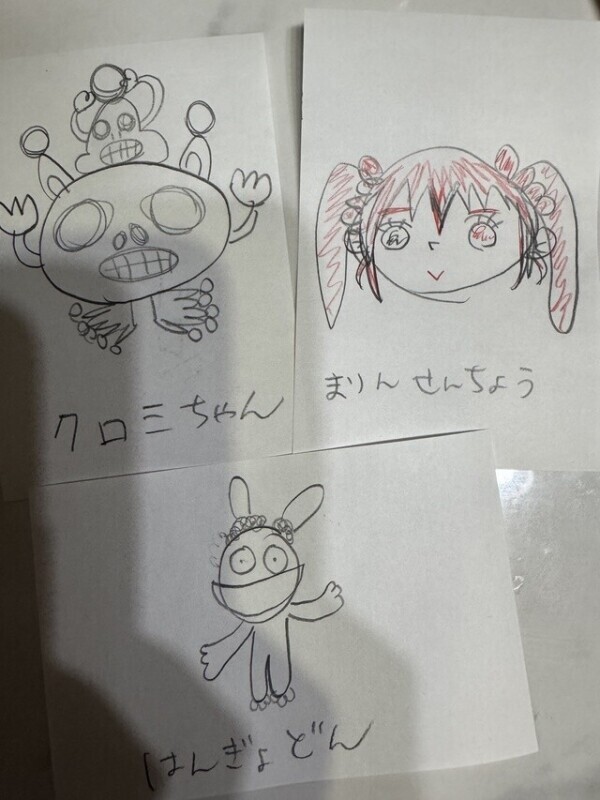 クロミちゃん
まりんせんちょう
はんぎょどん